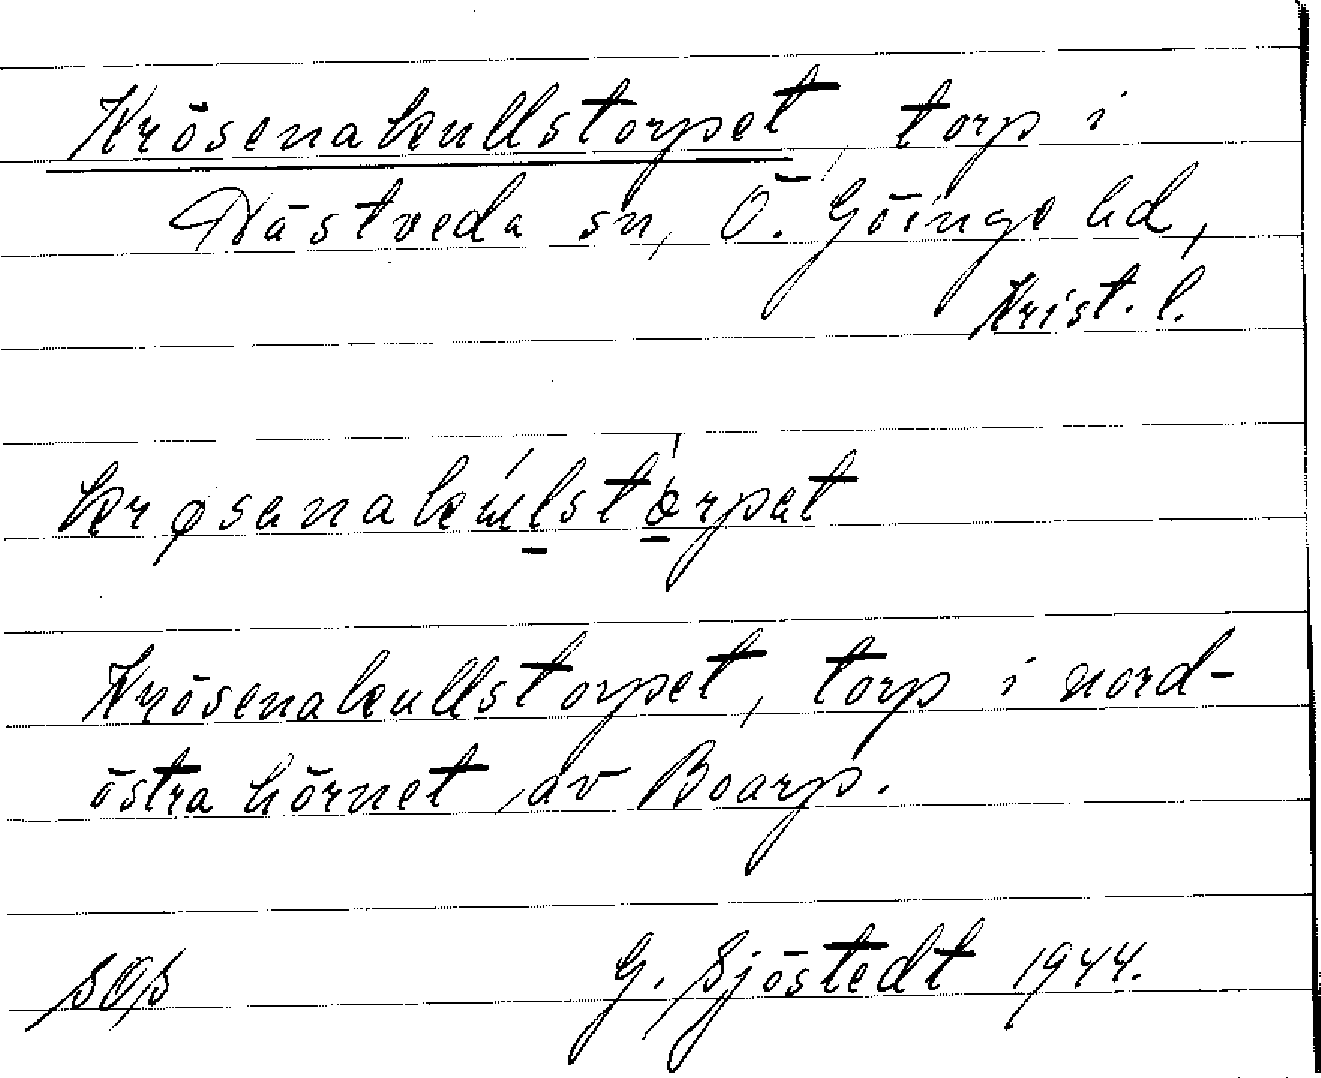 Krösenakullstorpet, torp i
Nästveda sn, Ö. Göinge hd,
Krist. l.
krøsenakúlstòrpet
Krösenakullstorpet, torp i nord-
östra hörnet av Boarp.
SOS G. Sjöstedt 1944.